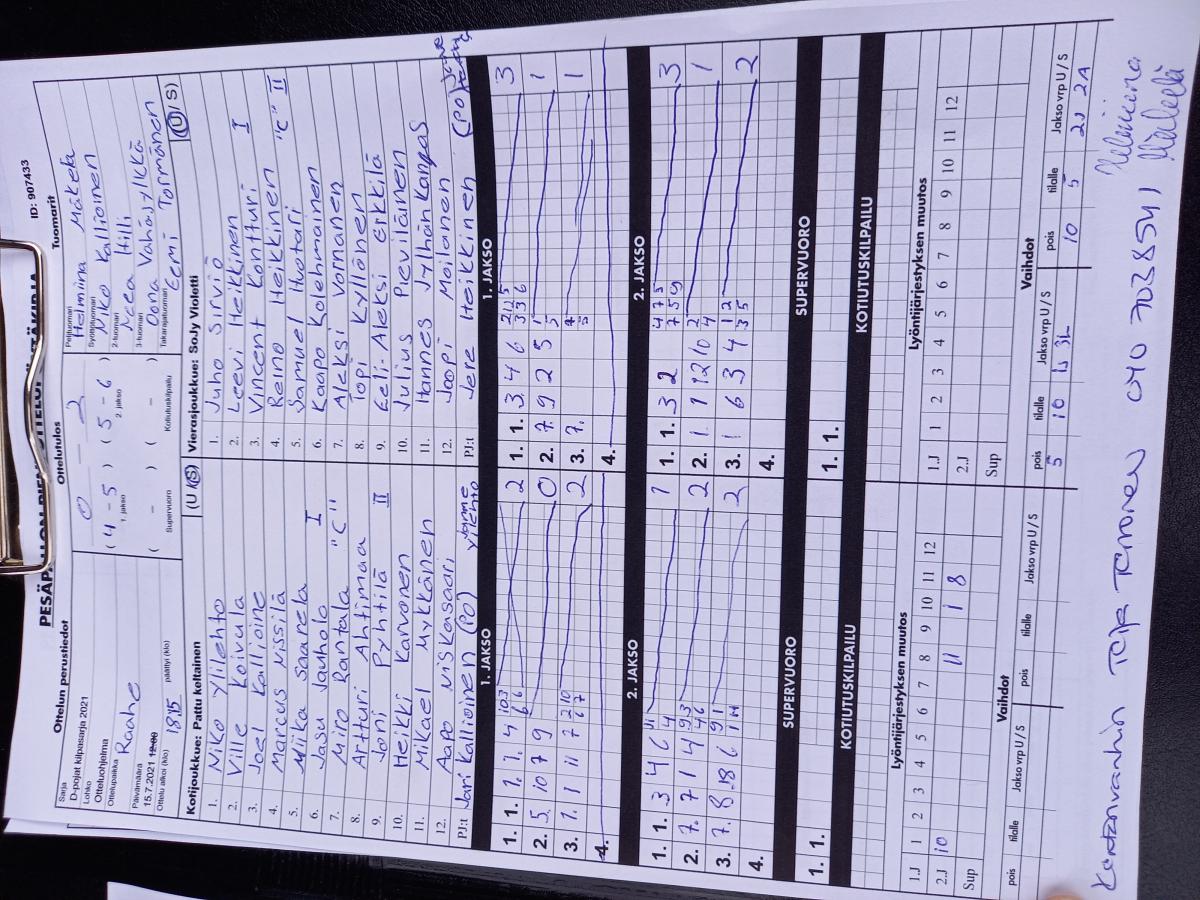 PESÄPALLON PIENPELIEN OTTELUPÖYTÄKIRJA
ID: 907433
Ottelun perustiedot
Sarja
D-pojat kilpasarja 2021
Lohko
Otteluohjelma
Ottelupaikka
Raahe
Päivämäärä
15.7.2021
Ottelu alkoi (klo)
18:15
päättyi (klo)
Ottelutulos
0 - 2
( 4 - 5 ) ( 5 - 6 )
1. jakso 2. jakso
( - ) ( - )
Supervuoro Kotiutuskilpailu
Tuomarit
Pelituomari
Helmiina Mäkelä
Syöttötuomari
Niko Kallioinen
2-tuomari
Neea Hilli
3-tuomari
Oona Vähäsylkkä
Takarajatuomari
Eemi Törmänen
Kotijoukkue: Pattu keltainen (U / S)
1. Niko Ylilehto
2. Ville Koivula
3. Joel Kallioine
4. Marcus Nissilä
5. Miika Saarela
6. Jasu Jauhola I
7. Miro Rantala "C"
8. Artturi Ahtimaa
9. Joni Pyhtilä II
10. Heikki Karvonen
11. Mikael Mykkänen
12. Aapo Niskasaari
PJ:t Jari Kallioinen (PO) Janne Ylilehto
Vierasjoukkue: SoJy Violetti (U / S)
1. Juho Sirviö
2. Leevi Heikkinen I
3. Vincent Kontturi
4. Reino Heikkinen "C" II
5. Samuel Huotari
6. Kaapo Kolehmainen
7. Aleksi Vornanen
8. Topi Kyllönen
9. Eeli-Aleksi Erkkilä
10. Julius Pieviläinen
11. Hannes Jylhänkangas
12. Joopi Moilanen
PJ:t Jere Heikkinen (PO)
1. JAKSO
1. 1. 1. 1. 4 2
2. 5. 10 7 9 0
3. 1. 1 11 7 2
4.
1. JAKSO
1. 1. 3 4 6 3
2. 7. 9 2 5 1
3. 7. 1
4.
2. JAKSO
1. 1. 3 4 6 1
2. 7. 7 1 4 2
3. 7. 8 6 2
4.
2. JAKSO
1. 1. 3 2 3
2. 1. 1 12 10 1
3. 1 6 3 4 2
4.
SUPERVUORO
1. 1.
SUPERVUORO
1. 1.
KOTIUTUSKILPAILU
KOTIUTUSKILPAILU
Lyöntijärjestyksen muutos
1.J 1 2 3 4 5 6 7 8 9 10 11 12
2.J 10 11 1 8
Sup
Lyöntijärjestyksen muutos
1.J 1 2 3 4 5 6 7 8 9 10 11 12
2.J
Sup
Vaihdot
pois tilalle Jakso vrp U / S pois tilalle Jakso vrp U / S
Vaihdot
pois tilalle Jakso vrp U / S pois tilalle Jakso vrp U / S
5 10 10 5 2J 2A
040 7038541
Helmiina
Mäkelä